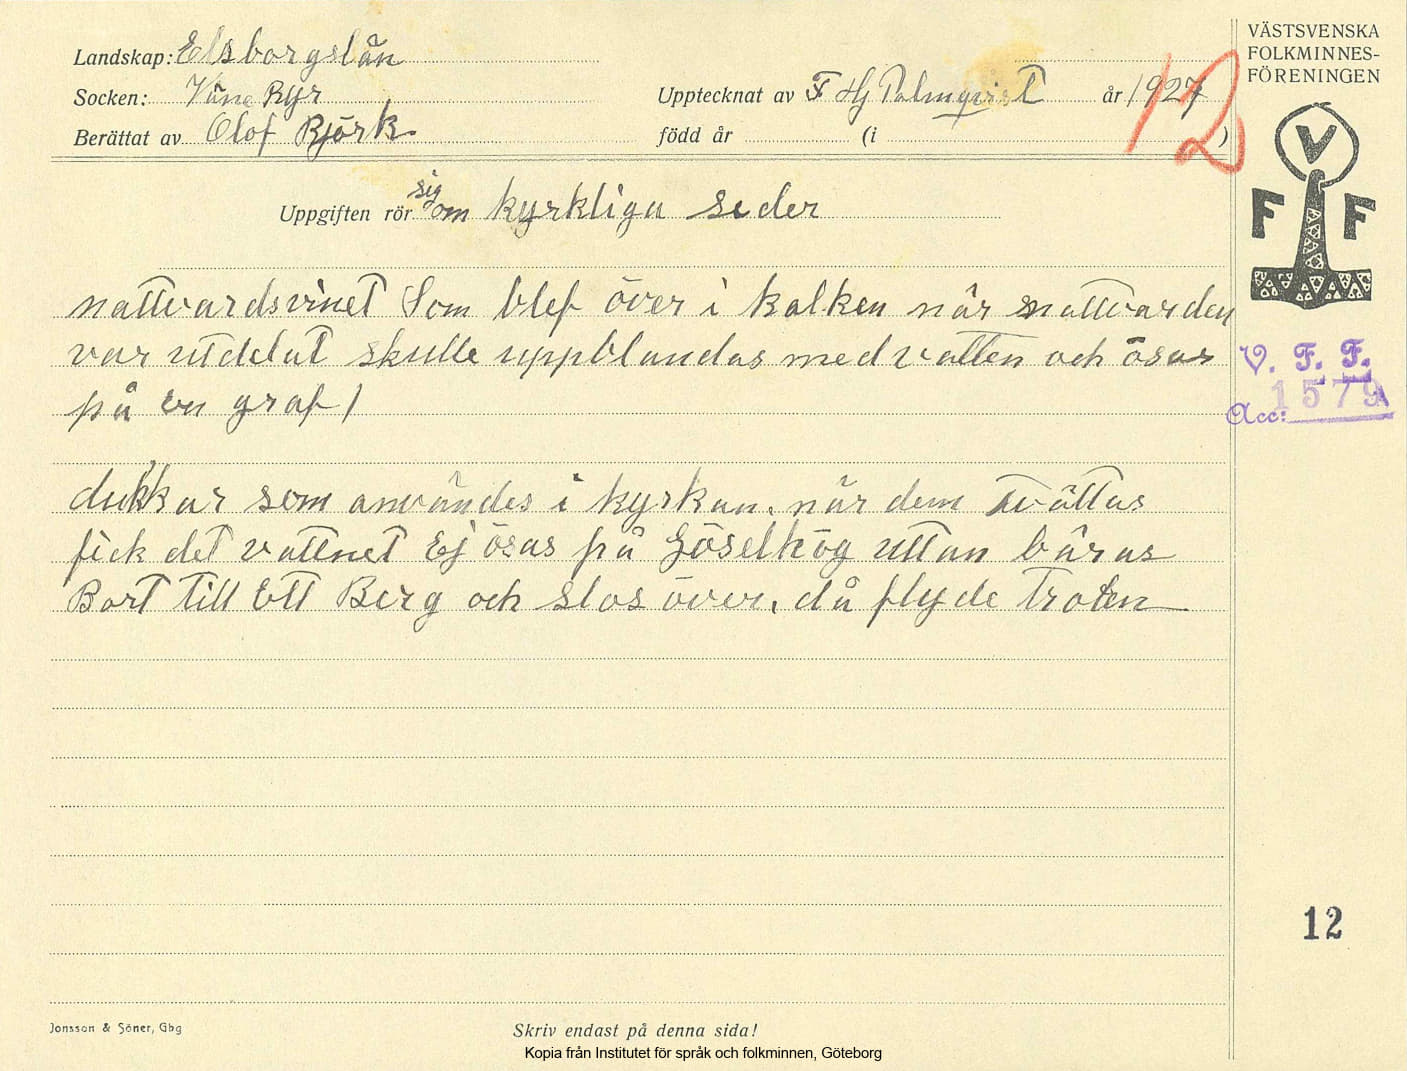 Landskap: Elsborgslän
Socken: Väne Ryr
Berättat av Olof Björk
Upptecknat av F Hj Palmqvist år 1927
född år (i )
12
VÄSTSVENSKA
FOLKMINNES-
FÖRENINGEN
V
F F
Uppgiften rör sig om kyrkliga seder
nattvardsvinet Som blef över i kalken när nattvarden
var utdelat skulle uppblandas med vatten och ösas
på en graf /
dukkar som användes i kyrkan. när dem tvättas
fick det vattnet Ej ösas på Göselhög uttan bäras
Bort till Ett Berg och slos över. då flyde troten
V. F. F.
Acc: 1579
12
Jonsson & Söner, Gbg
Skriv endast på denna sida!
Kopia från Institutet för språk och folkminnen, Göteborg